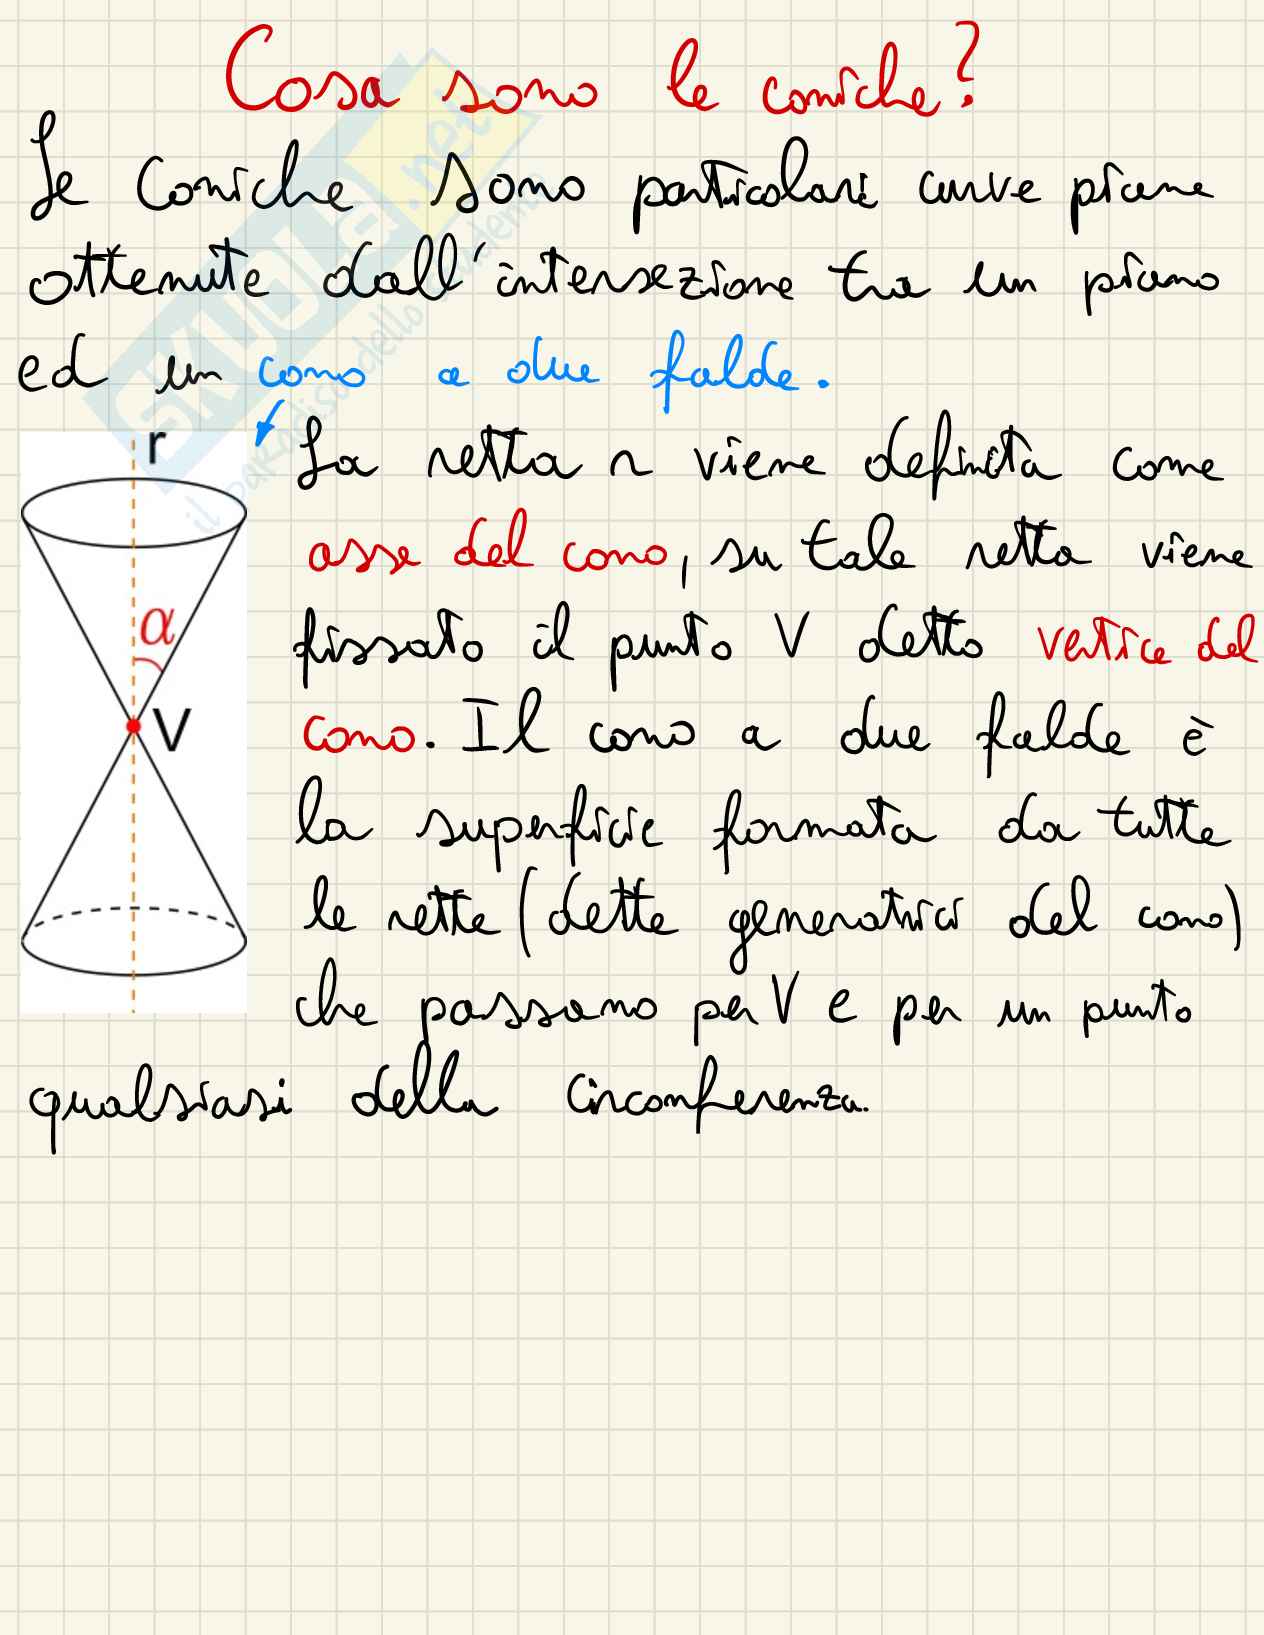 Cosa sono le coniche?
Le Coniche sono particolari curve piane
ottenute dall'intersezione tra un piano
ed un cono a due falde.
r
La retta r viene definita come
asse del cono, su tale retta viene
α
fissato il punto V detto vertice del
V
cono. Il cono a due falde è
la superficie formata da tutte
le rette (dette generatrici del cono)
che passano per V e per un punto
qualsiasi della circonferenza.
SKUOLA.net
il paradiso dello studente